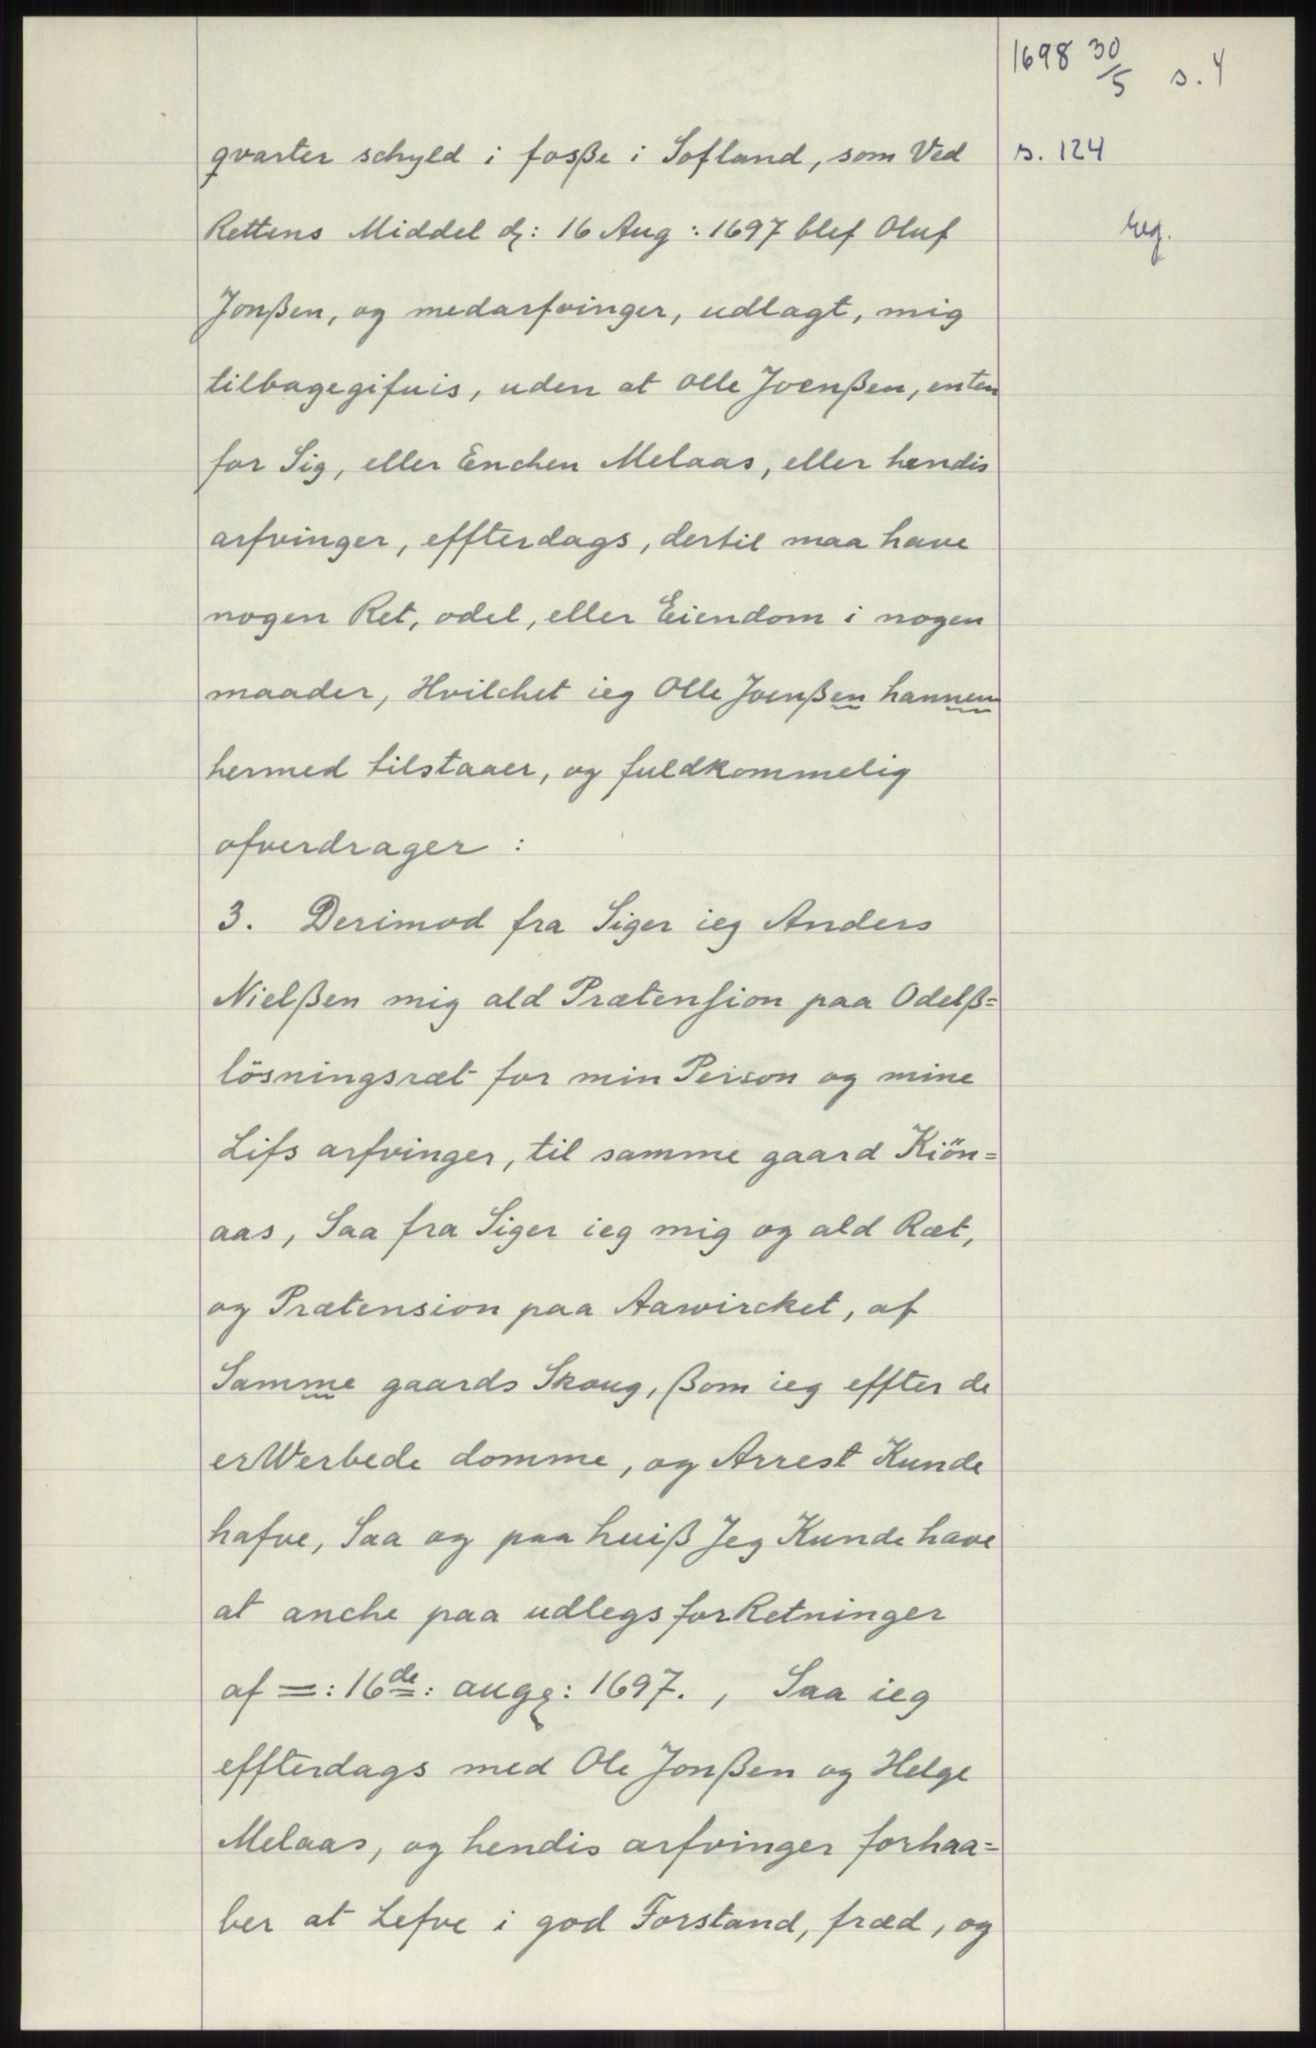 1698 30/5 s. 4
qvarter schyld i fosße i Sofland, som Ved
s. 124
Rettens Middel d: 16 Aug: 1697 blef Oluf
Jonßen, og medarfvinger, udlagt, mig
tilbagegifuis, uden at Olle Joenßen, enten
for Sig, eller Enchen Melaas, eller hendis
arfvinger, effterdags, dertil maa have
nogen Ret, odel, eller Eiendom i nogen
maader, Hvilchet ieg Olle Joenßen hannem
hermed tilstaaer, og fuldkommelig
ofverdrager :
3. Derimod fra Siger ieg Anders
Nielßen mig ald Prætension paa Odelß=
lösningsræt for min Person og mine
Lifs arfvinger, til samme gaard Kiön=
aas, Saa fra Siger ieg mig og ald Ræt,
og Prætension paa Aawircket, af
Samme gaards Skoug, ßom ieg effter de
erWerbede domme, og Arrest Kunde
hafve, Saa og paa huiß Jeg Kunde have
at anche paa udlegs forRetninger
af =: 16de: aug: 1697. , Saa ieg
effterdags med Ole Jonßen og Helge
Melaas, og hendis arfvinger forhaa=
ber at Lefve i god Forstand, fræd, og